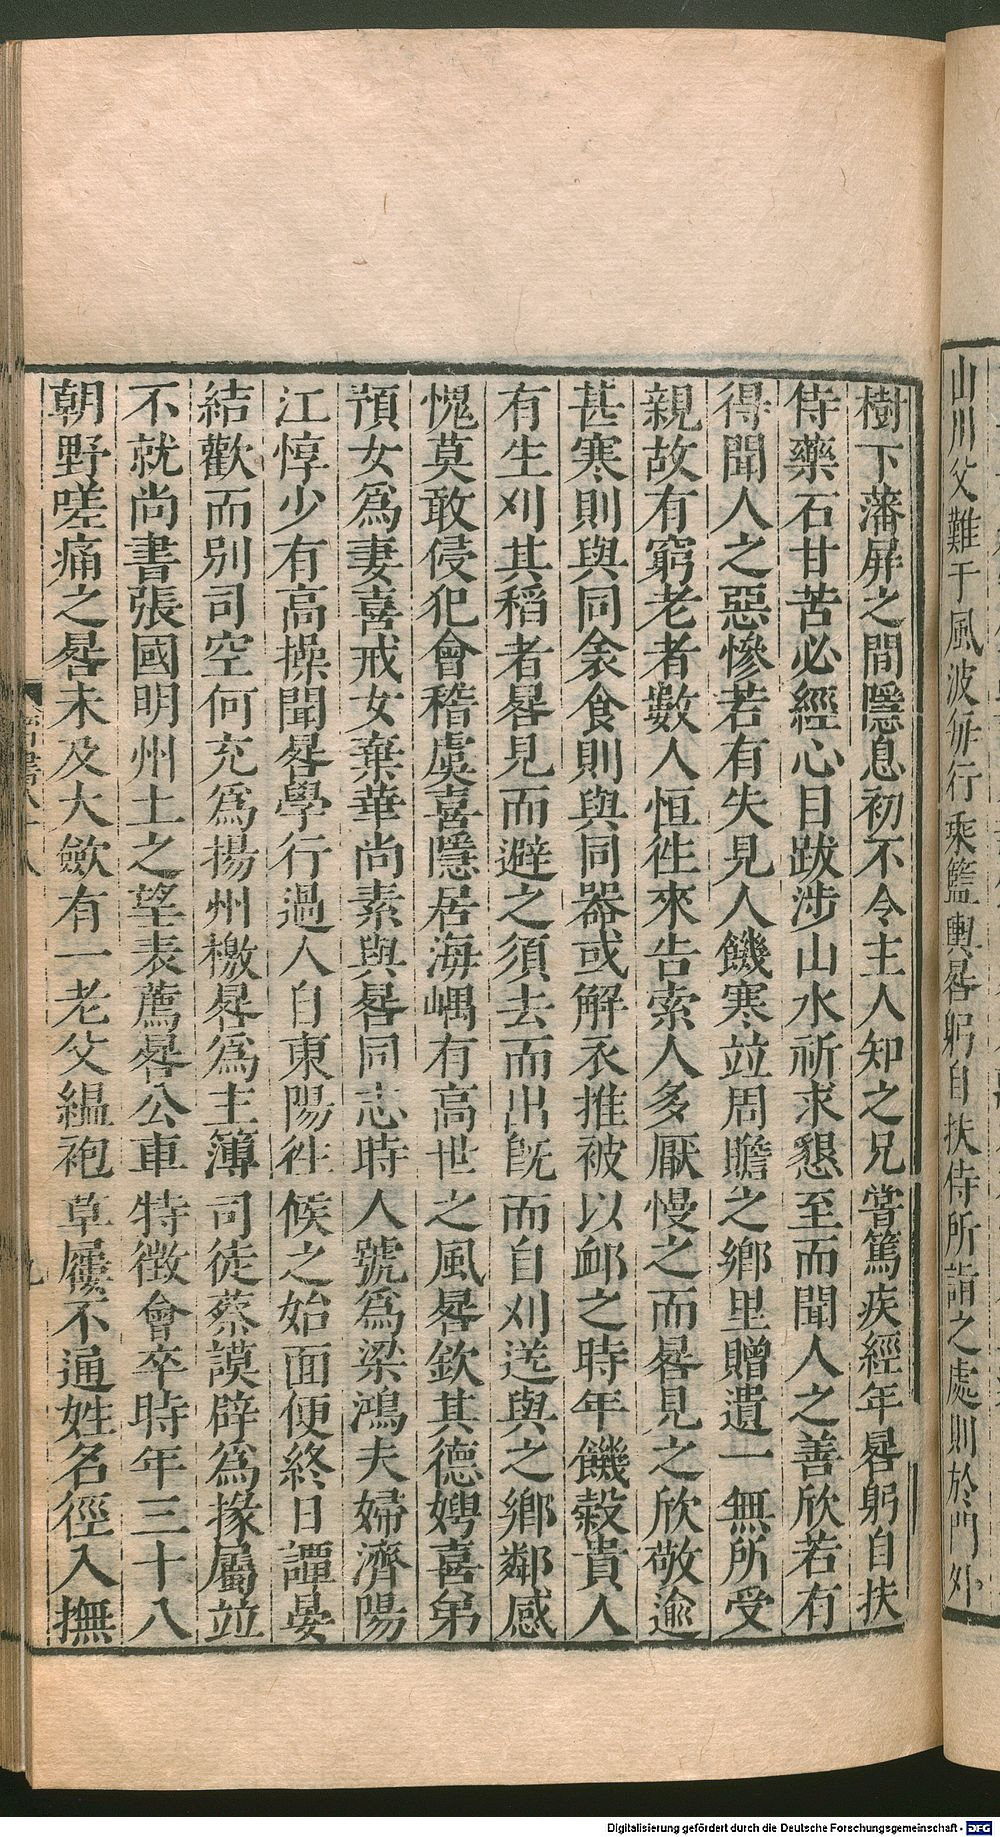 山川父難于風波每行乘籃輿晷躬自扶侍所詣之處則於門外
樹下藩屏之間隱息初不令主人知之兄嘗篤疾經年晷躬自扶
侍藥石甘苦必經心目跋涉山水祈求懇至而聞人之善欣若有
得聞人之惡慘若有失見人饑寒並周贍之鄉里贈遺一無所受
親故有窮老者數人恒徃來告索人多厭慢之而晷見之欣敬逾
甚寒則與同衾食則與同器或解衣推被以衈之時年饑穀貴人
有生刈其稻者晷見而避之須去而出旣而自刈送與之鄉鄰感
愧莫敢侵犯會稽虞喜隱居海嵎有高世之風晷欽其德娉喜弟
預女爲妻喜戒女棄華尚素與晷同志時人號爲梁鴻夫婦濟陽
江惇少有高操聞晷學行過人自東陽徃候之始面便終日譚晏
結歡而別司空何充爲揚州檄晷爲主簿司徒蔡謨辟爲掾屬竝
不就尚書張國明州土之望表薦晷公車特徵會卒時年三十八
朝野嗟痛之晷未及大斂有一老父緼袍草屨不通姓名徑入撫
Digitalisierung gefördert durch die Deutsche Forschungsgemeinschaft - DFG